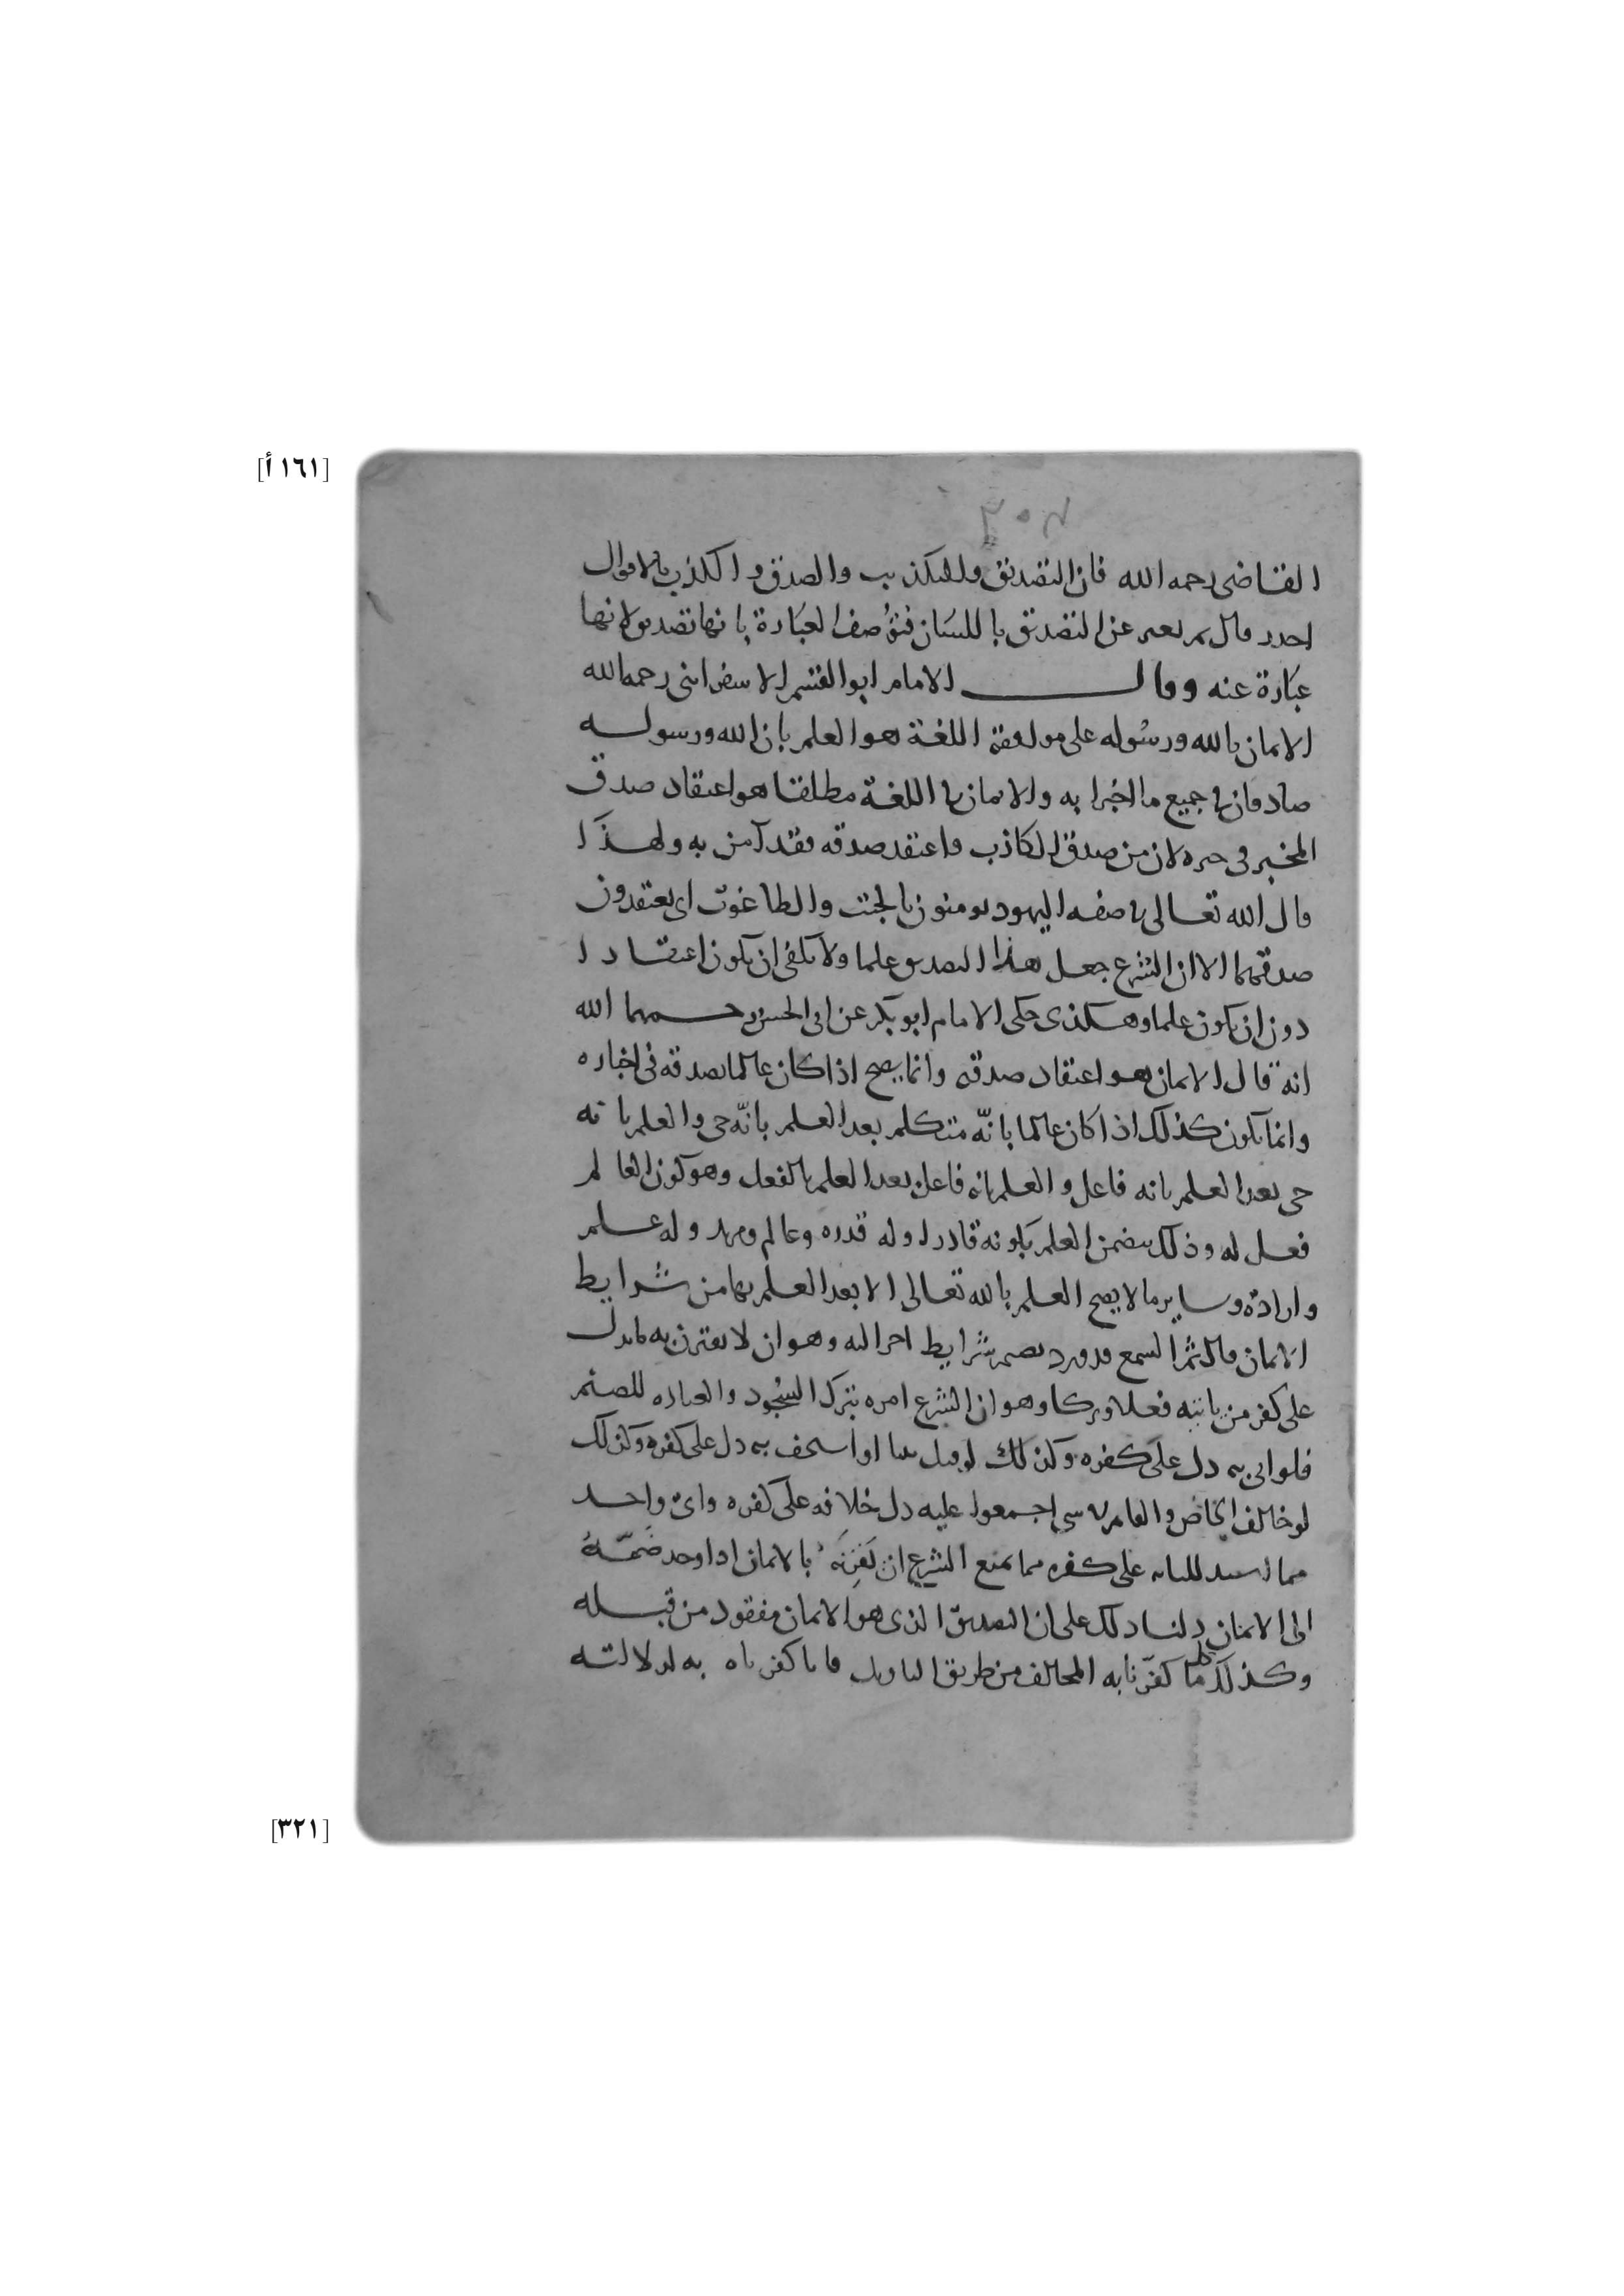 [١٦١ أ]
القاضى رحمه الله فان التصديق والتكذيب والصدق والكذب بالاقوال
اجدر قال ثم يعبر عن التصديق باللسان فتوصف العبارة بانها تصديق لانها
عبارة عنه وقال الامام ابو القسم الاسفراينى رحمه الله
الايمان بالله ورسوله على موافقة اللغة هو العلم بان الله ورسوله
صادقان فى جميع ما اخبرا به والايمان فى اللغة مطلقا هو اعتقاد صدق
المخبر فى خبره لان من صدق الكاذب واعتقد صدقه فقد آمن به ولهذا
قال الله تعالى فى صفه اليهود يومنون بالجبت والطاغوت اى يعتقدون
صدقهما الا ان الشرع جعل هذا التصديق علما ولا يكفى ان يكون اعتقادا
دون ان يكون علما وهكذى حكى الامام ابو بكر عن ابى الحسن رحمهما الله
انه قال الايمان هو اعتقاد صدقه وانما يصح اذا كان عالما بصدقه فى اخباره
وانما يكون كذلك اذا كان عالما بانّه متكلم بعد العلم بانّه حى والعلم بانه
حى بعد العلم بانه فاعل والعلم بانه فاعل بعد العلم بالفعل وهو كون العالم
فعل له وذلك يتضمن العلم بكونه قادرا وله قدره وعالم ومريد وله علم
وارادة وساير ما لا يصح العلم بالله تعالى الا بعد العلم بها من شرايط
الايمان قال ثم السمع قد ورد بضم شرايط اخر اليه وهو ان لا يقترن به ما يدل
على كفر من ياتيه فعلا وتركا وهو ان الشرع امره بترك السجود والعباده للصنم
فلو اتى به دل على كفره وكذلك لو قتل نبيا او استخف به دل على كفره وكذلك
لو خالف الخاص والعام فى شى اجمعوا عليه دل خلافه على كفره واىّ واحد
مما على كفره مما يمنع الشرع ان يقرنه بالايمان اذا وجد ضمّه
الى الايمان دلنا ذلك على ان التصديق الذى هو الايمان مفقود من قبله
وكذلك كل ما كفّرنا به المخالف من طريق التاويل فانا كفرناه به لدلالته
[٣٢١]